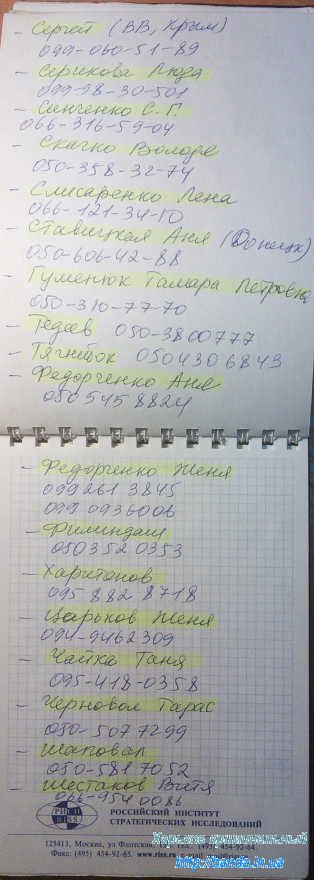 - Сергей (ВВ, Крым)
099-060-51-89
- Серикова Люда
099-98-30-501
- Синченко С.Г.
066-316-59-04
- Скачко Володя
050-358-32-74
- Слисаренко Лена
066-121-34-10
- Ставицкая Аня (Донецк)
050-606-42-88
- Гуменюк Тамара Петровна
050-310-77-70
- Тедеев 050-3800777
- Тягниток 0504306843
- Федорченко Аня
0505458824
- Федорченко Женя
099 261 3845
099 0936006
- Филиндаш
050352 0353
- Харитонов
095 882 8718
- Царьков Женя
094-9462309
- Чайка Таня
095-418-0358
- Черновол Тарас
050-507 7299
- Шаповал
050-581 7052
- Шестаков Витя
066-954 0086
РИСИ
RISS
РОССИЙСКИЙ ИНСТИТУТ
СТРАТЕГИЧЕСКИХ ИССЛЕДОВАНИЙ
Харьков криминальный
125413, Москва, ул Флотская, тел. (495) 454-92-64
Факс: (495) 454-92-65 www.riss.ru
http://banda.in.ua